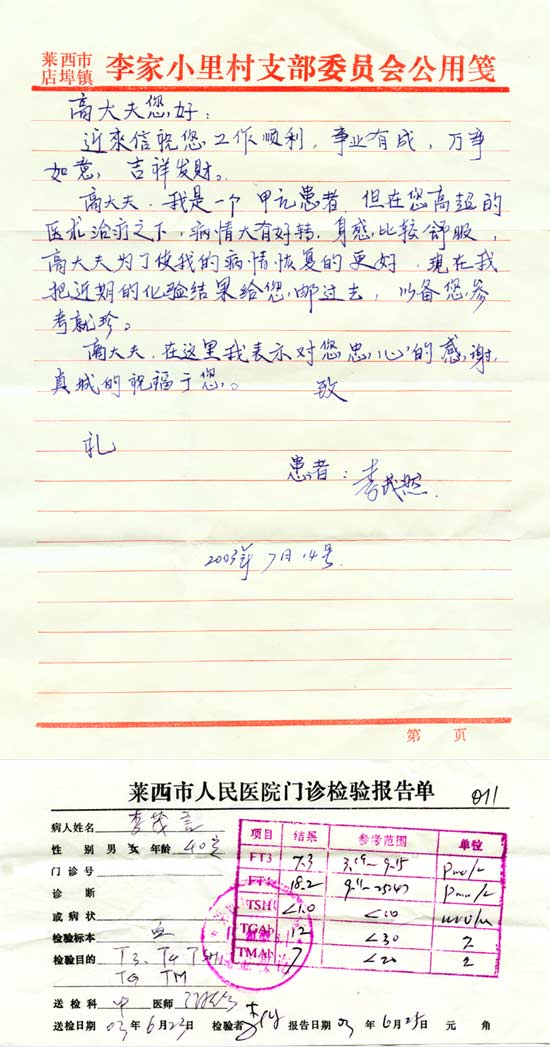 莱西市
店埠镇 李家小里村支部委员会公用笺
高大夫您好：
近来信祝您工作顺利，事业有成，万事
如意，吉祥发财。
高大夫，我是一个甲亢患者，但在您高超的
医术治疗之下，病情大有好转，身感比较舒服，
高大夫为了使我的病情恢复的更好，现在我
把近期的化验结果给您邮过去，以备您参
考就珍。
高大夫，在这里我表示对您忠心的感谢，
真城的祝福于您。 致
礼
患者：李茂
2003年7月14号.
第 页
莱西市人民医院门诊检验报告单 011
病人姓名 李茂
性别 男 女 年龄 40岁
门诊号
诊断
或病状
检验标本 血
检验目的 T3、T4 TSH
TG TM
项目 结果 参考范围 单位
FT3 7.3
FT4 18.2
TSH <1.0 <10
TGAb 12 <30
TMAb 7 <20
送检科 医师
送检日期 03年6月23日 检验者 报告日期 03年6月25日 元 角